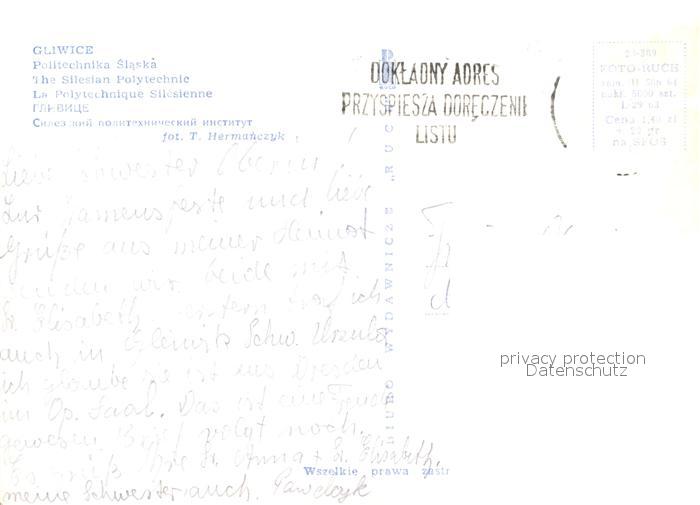 GLIWICE
Politechnika Śląska
The Silesian Polytechnic
La Polytechnique Silésienne
ГЛИВИЦЕ
Силезский политехнический институт
fot. T. Hermańczyk
DOKŁADNY ADRES
PRZYSPIESZA DORĘCZENIE
LISTU
FOTO-RUCH
Cena 1,40 zł
na SFOS
BIURO WYDAWNICZE „RUCH”
Liebe Schwester Oberin,
Zur Namensfeste und liebe
Grüße aus meiner Heimat
senden wir beide mit
Sr. Elisabeth, gestern traf ich
auch in Gleiwitz Schw. Urzula
ich glaube sie ist aus Dresden
im Op. Saal. Das ist eine Freude
gewesen. Brief folgt noch.
Es grüßt Ihre Sr. Anna + Sr. Elisabeth,
meine Schwester auch. Pawelczyk
Wszelkie prawa zastr
privacy protection
Datenschutz